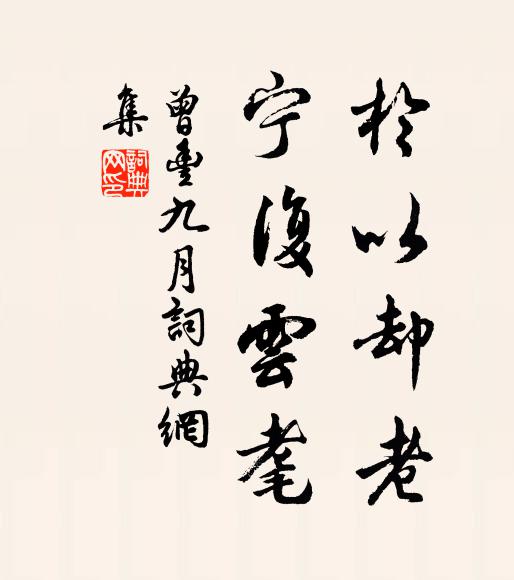 於以却老
宁復雲耄
曾豊九月詞典網
集
詞典网印